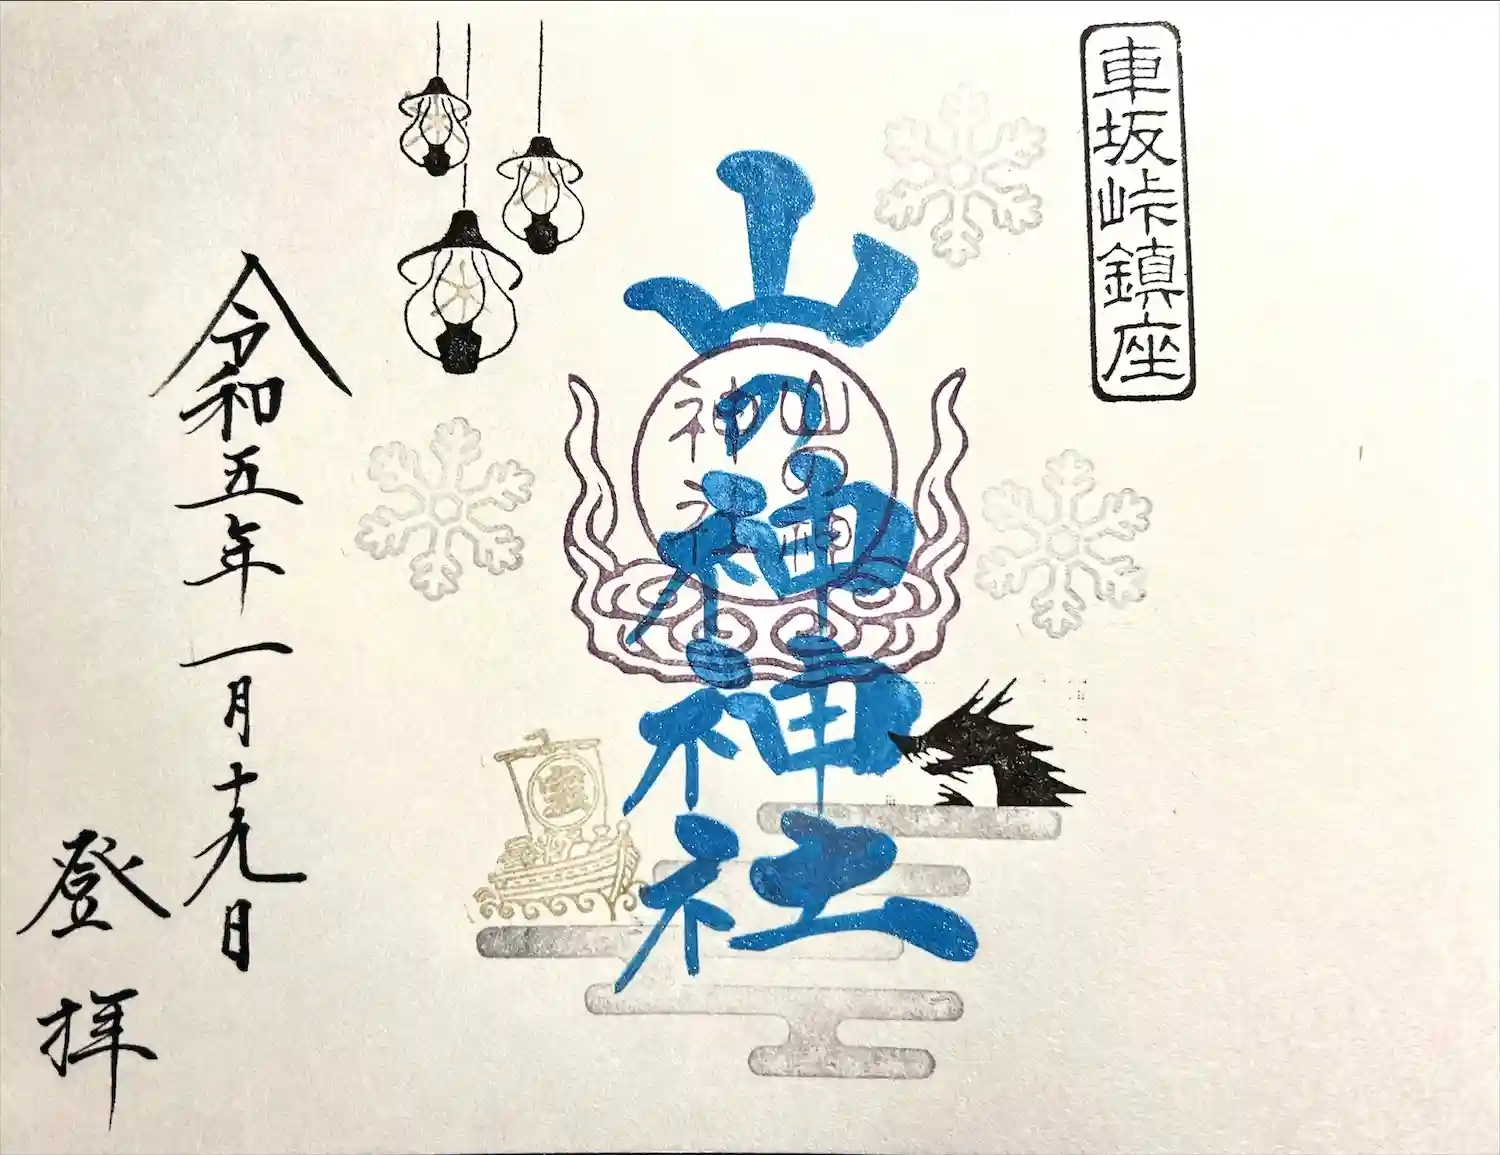 車坂峠鎮座
山の神神社
山の神
神社
宝
令和五年一月十九日
登拝